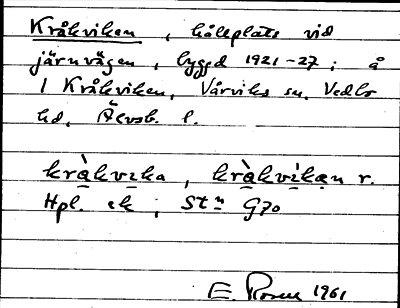 Kråkviken, hållplats vid
järnvägen, byggd 1921-27; å
1 Kråkviken, Vårviks sn, Vedbo
hd, Älvsb. l.
kråkvika, kråkvikan r.
Hpl. ek ; Stn G70
E. Rosen 1961